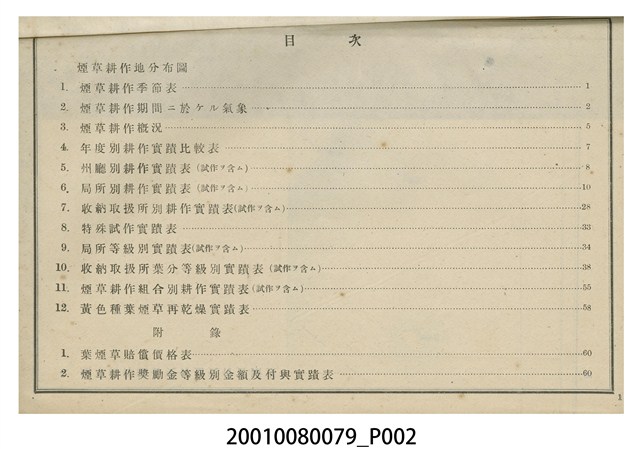 目 次
煙草耕作地分布圖
1. 煙草耕作季節表 1
2. 煙草耕作期間ニ於ケル氣象 2
3. 煙草耕作槪況 5
4. 年度別耕作實蹟比較表 7
5. 州廳別耕作實蹟表(試作ヲ含ム) 8
6. 局所別耕作實蹟表(試作ヲ含ム) 10
7. 收納取扱所別耕作實蹟表(試作ヲ含ム) 28
8. 特殊試作實蹟表 33
9. 局所等級別實蹟表(試作ヲ含ム) 34
10. 收納取扱所葉分等級別實蹟表(試作ヲ含ム) 38
11. 煙草耕作組合別耕作實蹟表(試作ヲ含ム) 55
12. 黃色種葉煙草再乾燥實蹟表 58
附 錄
1. 葉煙草賠償價格表 60
2. 煙草耕作獎勵金等級別金額及付與實蹟表 60
1
20010080079_P002